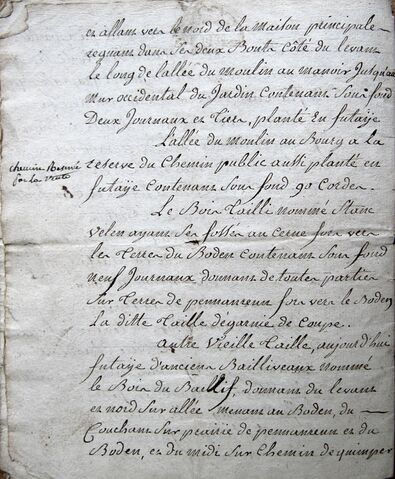 et allant vers le nord de la maison principale
regnant dans ses deux Bouts côté du levant
le long de l'allée du moulin au manoir Jusqu'au
mur occidental du Jardin Contenant Sous fond
Deux Journaux et tiers, planté en futaye
L'allée du moulin au Bourg a La
chemin Reservé
sur la vente
reserve du Chemin public aussi planté en
futaye Contenant sous fond 90 Cordes
Le Bois Tailli nommé Stanc
velen ayant ses fossés au cerne fors vers
les Terres du Boden contenant sous fond
neuf Journaux donnant de toutes parties
sur Terres de pennanreun fors vers le Boden
La ditte Taille dégarnie de Coupe.
Autre Vieille Taille, aujourd'hui
futaye d'anciens Bailliveaux nommé
le Bois du Baillif, donnant du levant
et nord sur allée menant au Boden, du
Couchant sur prairie de pennanreun et du
Boden, et du midi sur Chemin de quimper